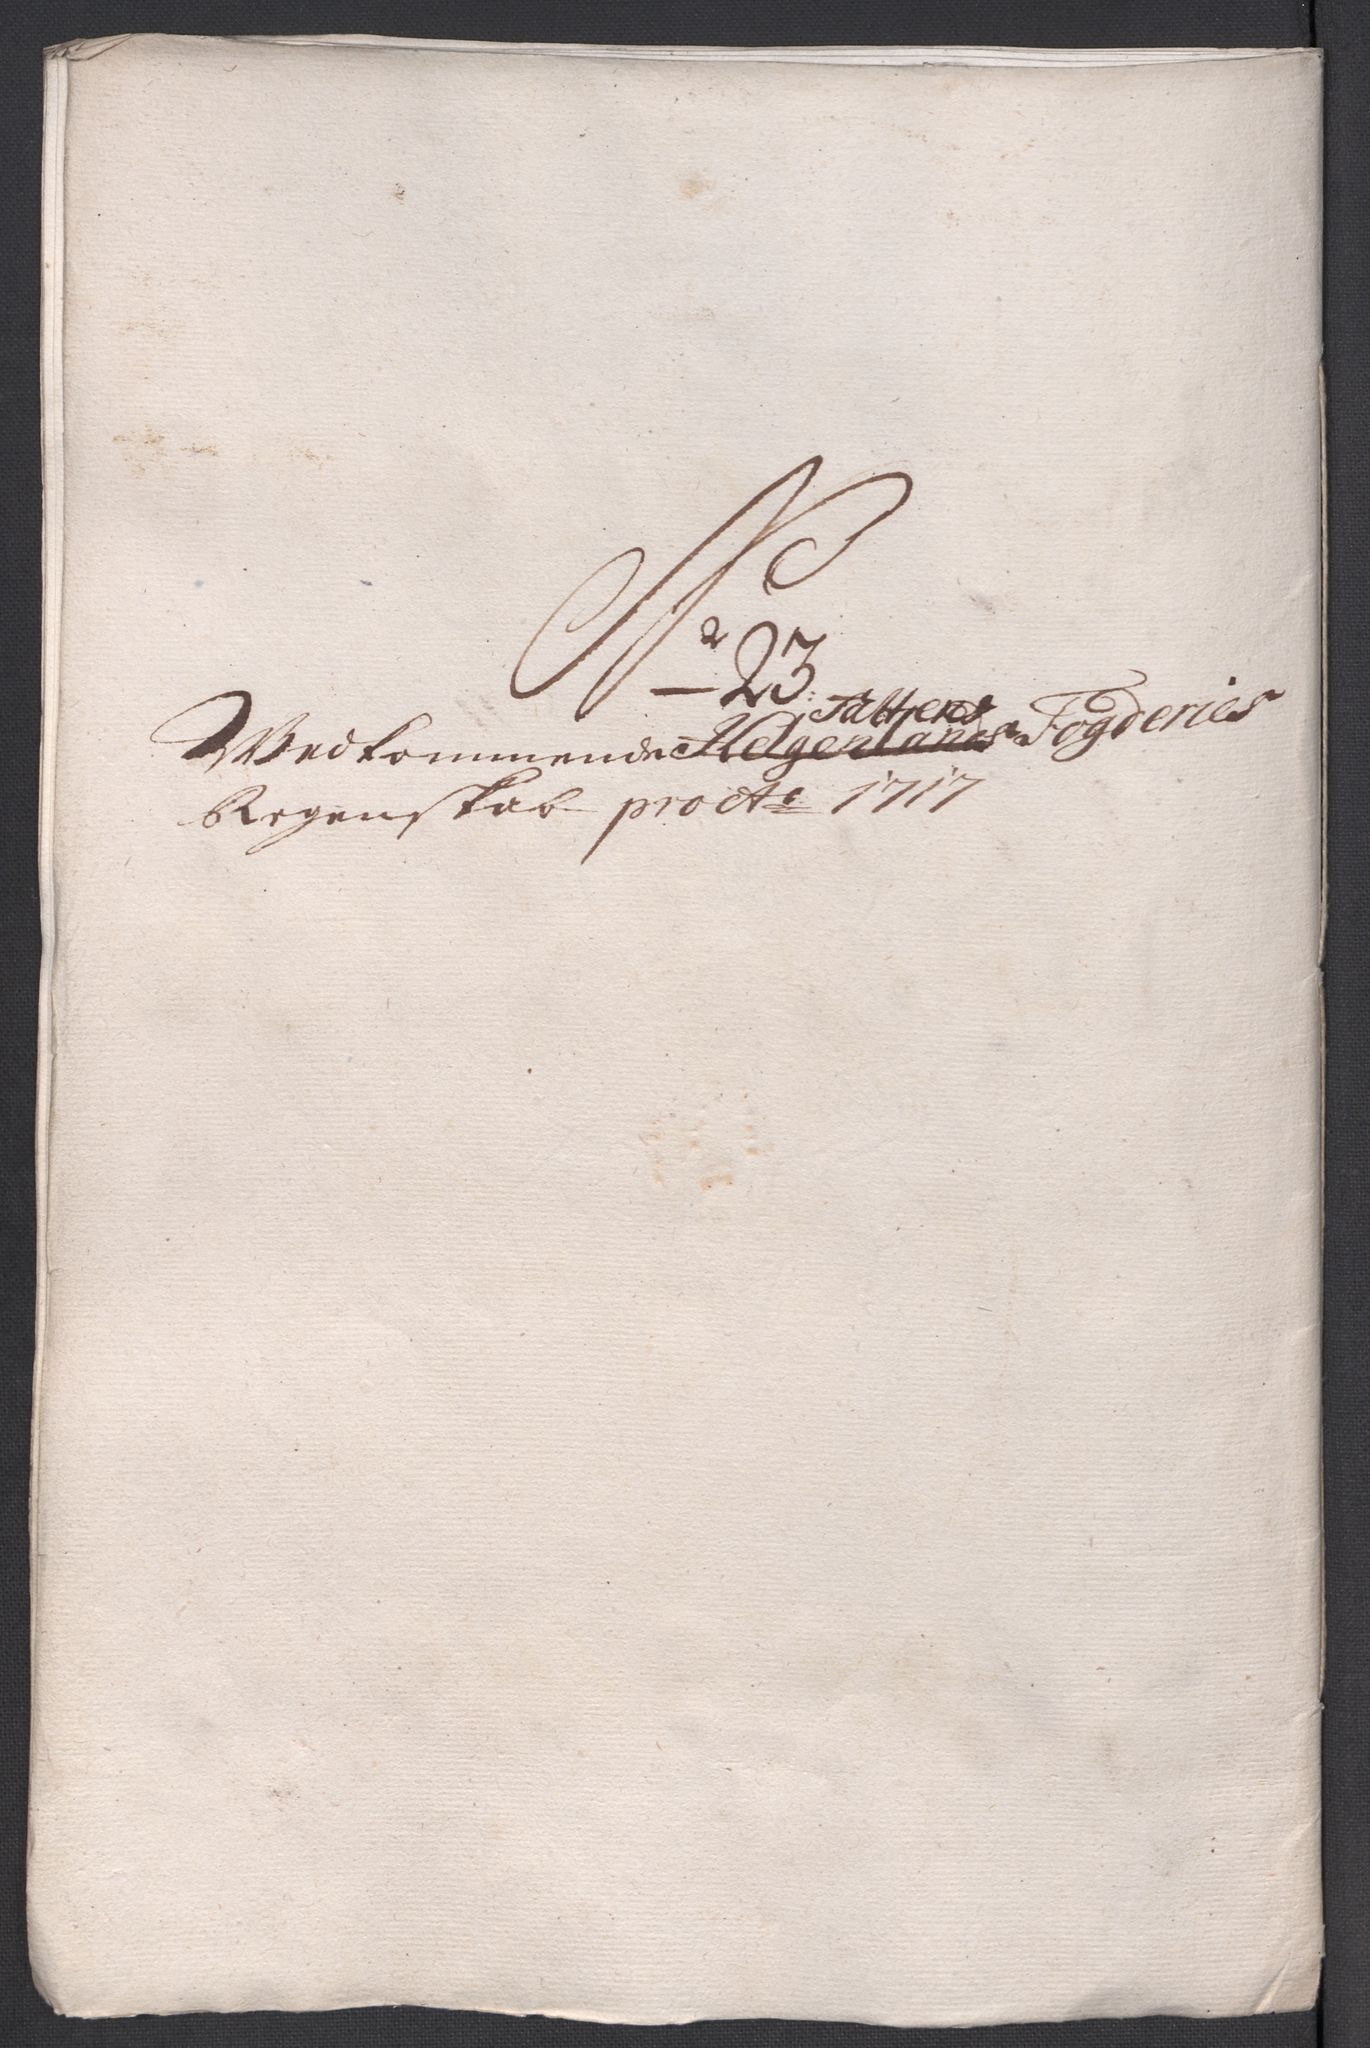 No 23
Saltens
Vedkommende Helgenlands Fogderies
Regenskab pro Ao 1717